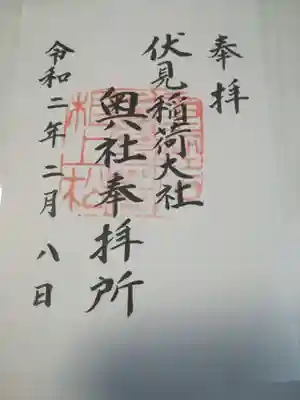 奉拝
伏見稲荷大社
奥社奉拝所
令和二年二月八日